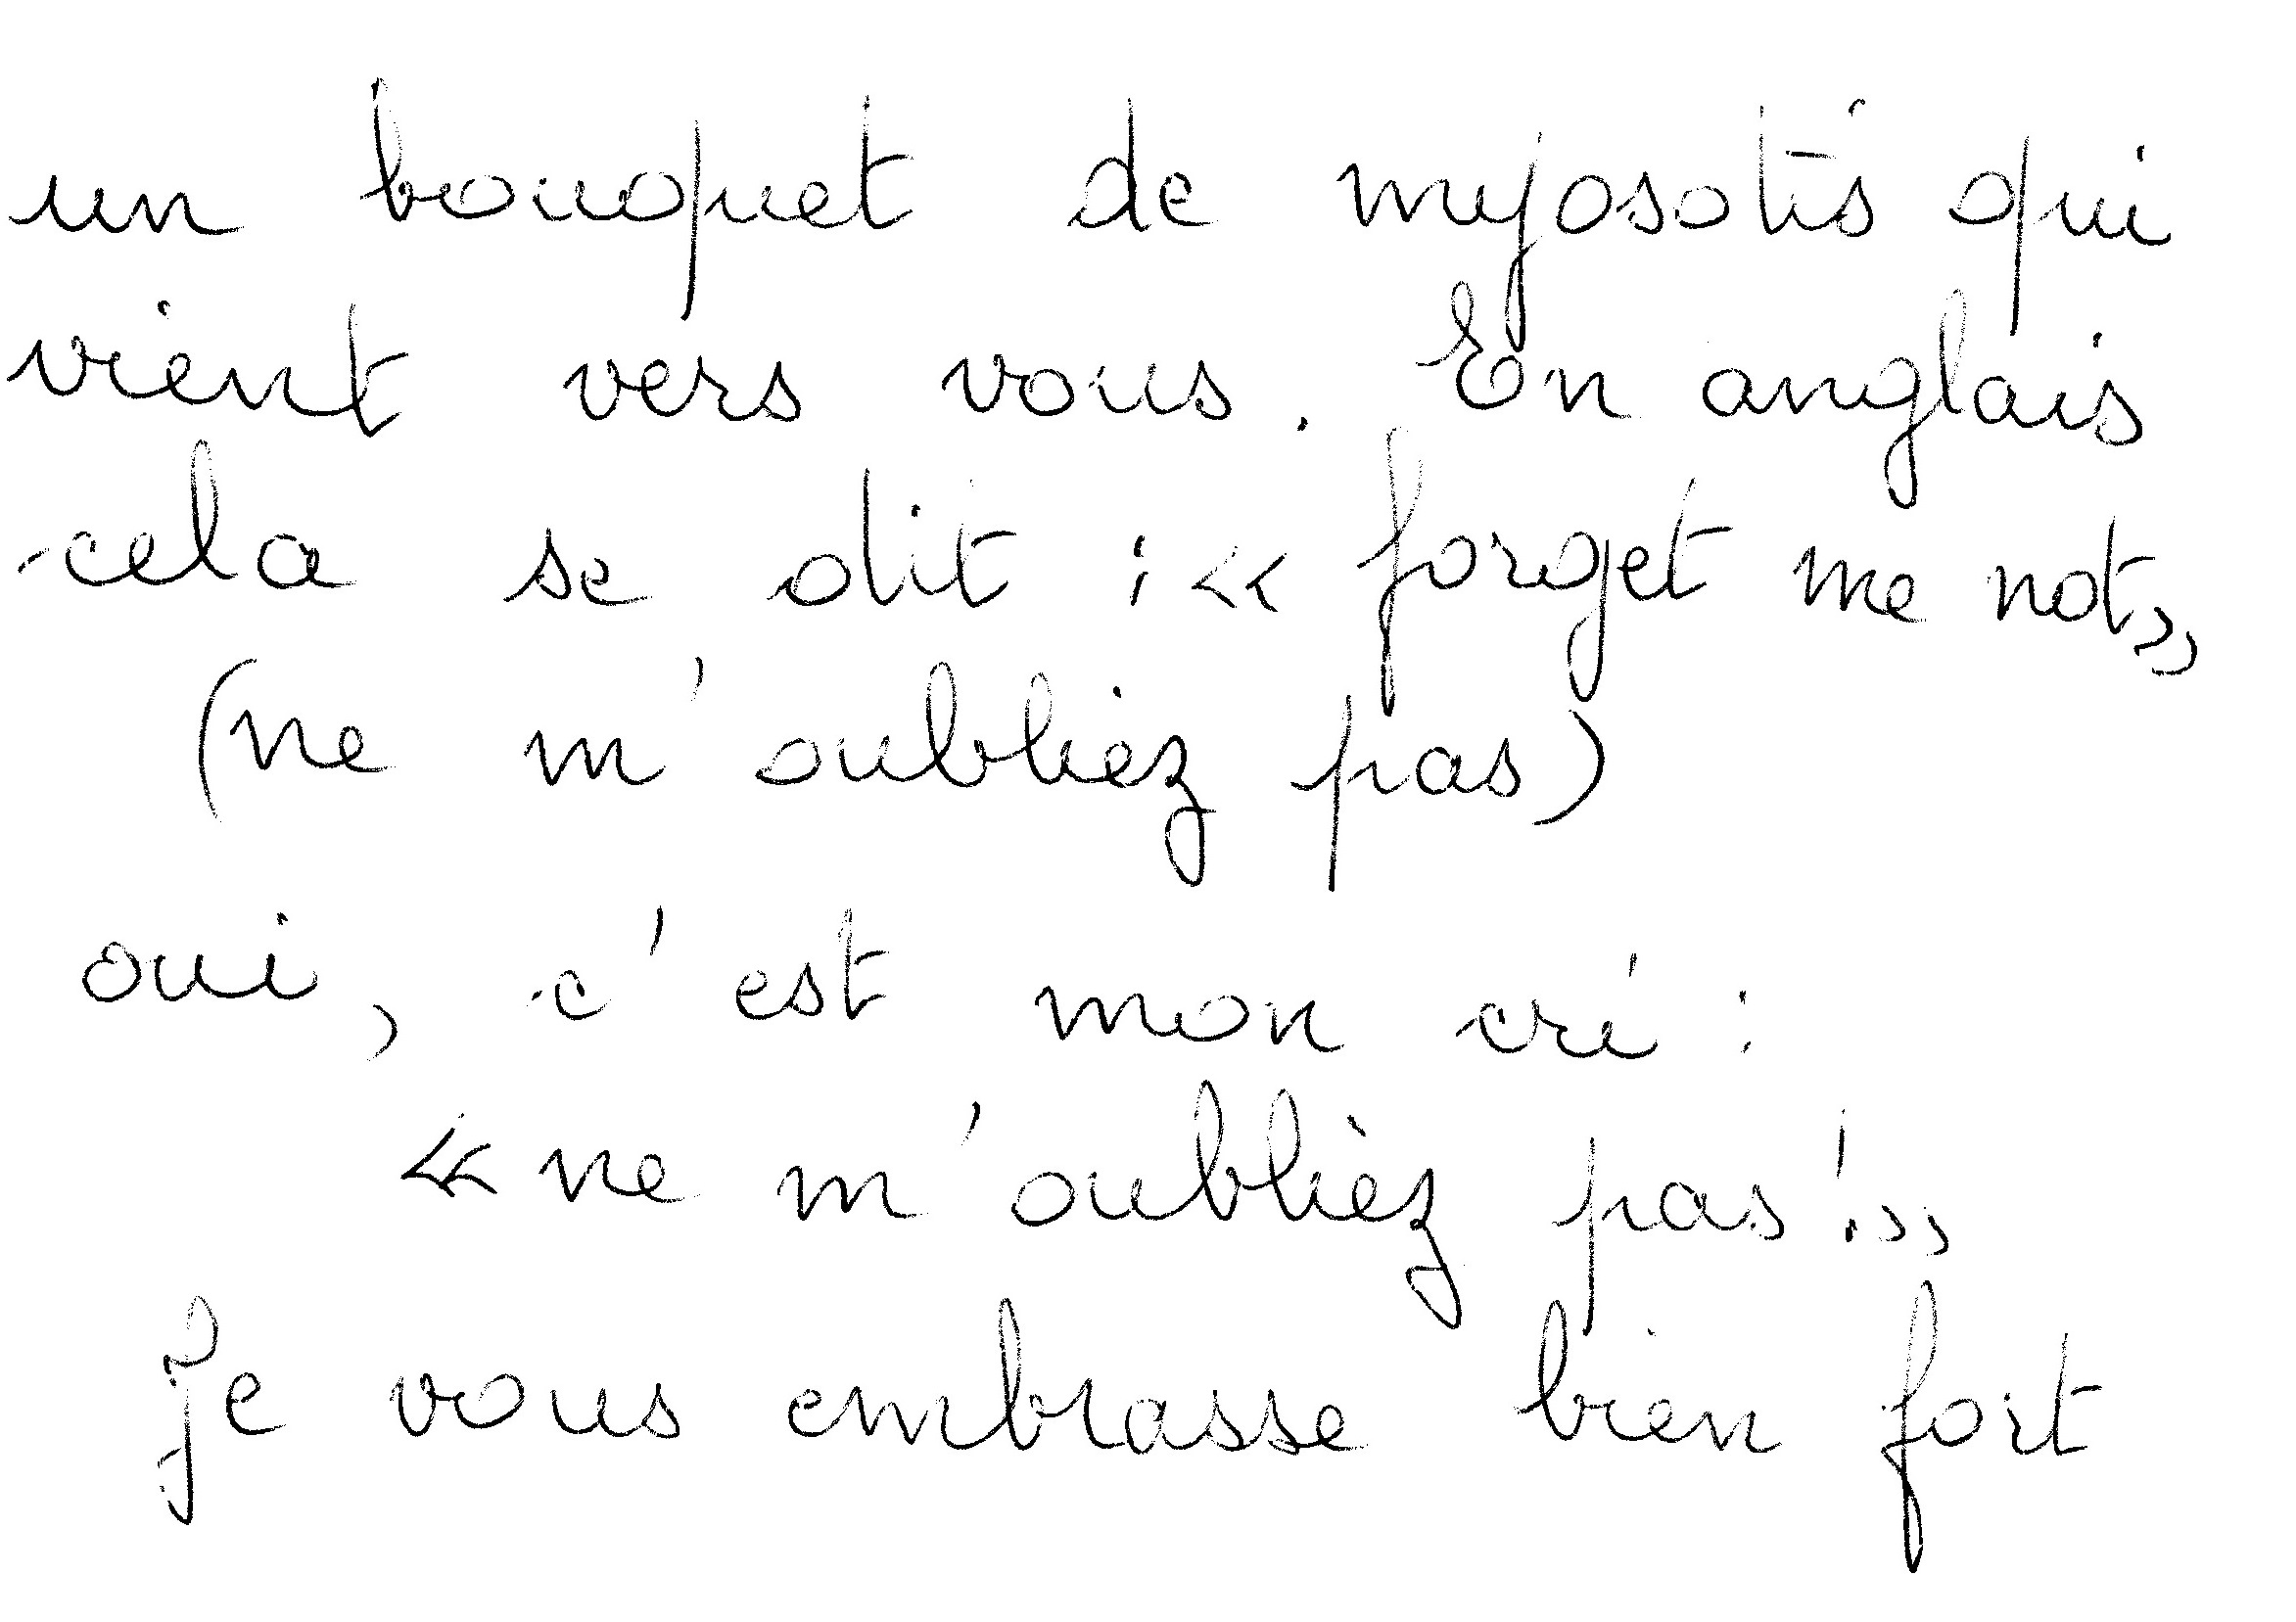 un bouquet de myosotis qui
vient vers vous. En anglais
cela se dit : « forget me not»
(ne m'oubliez pas)
oui, c'est mon cri :
« ne m'oubliez pas! »
Je vous embrasse bien fort